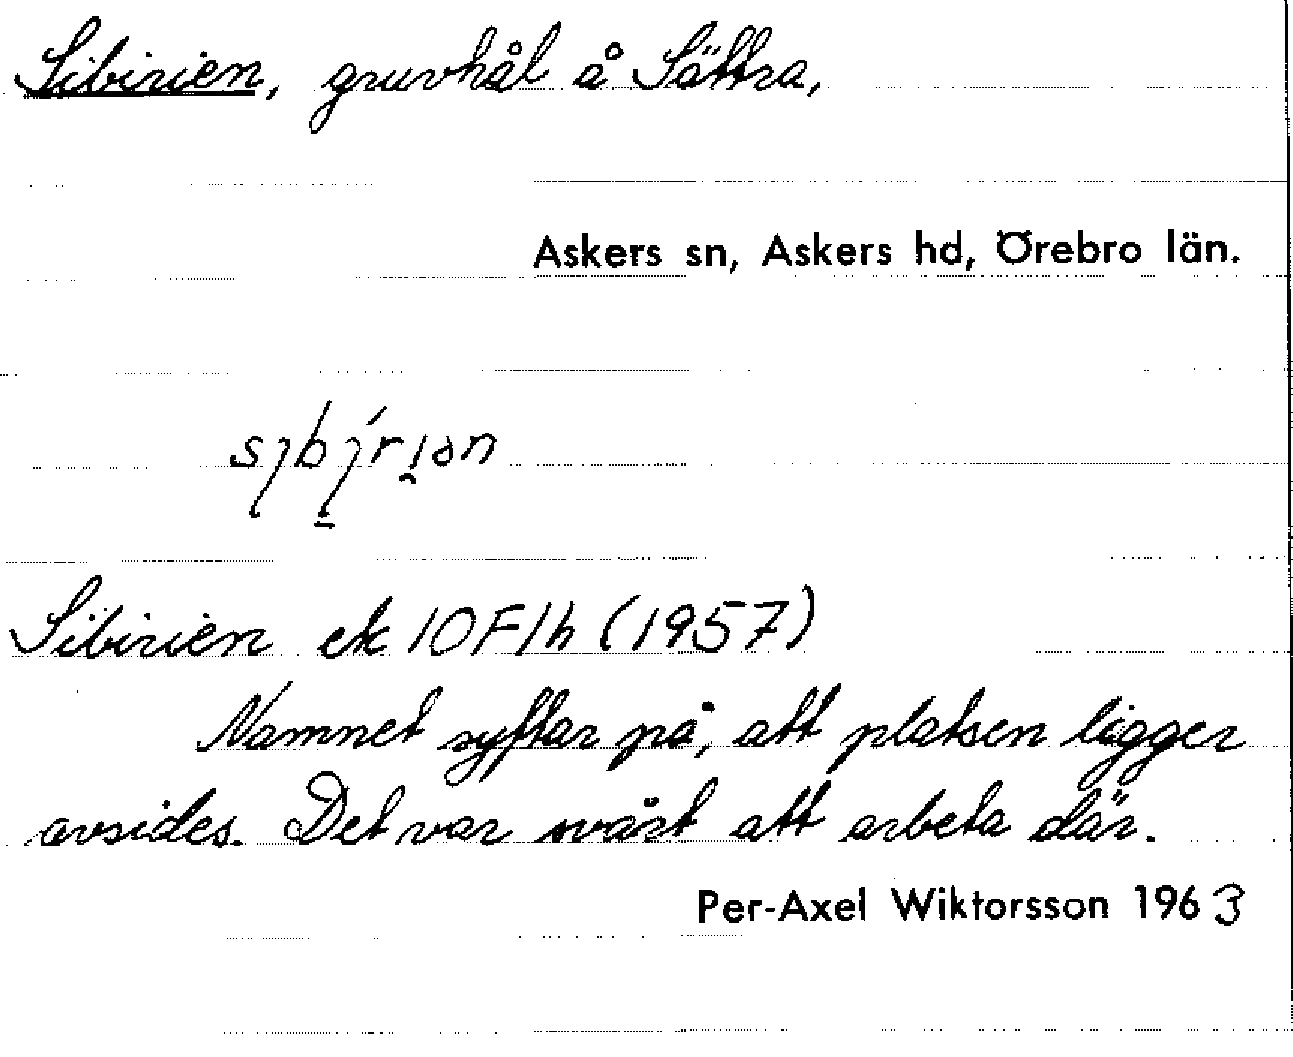 Sibirien, gruvhål å Sättra,
Askers sn, Askers hd, Örebro län.
Sibirien ek 10F1h (1957)
Namnet syftar på, att platsen ligger
avsides. Det var svårt att arbeta där.
Per-Axel Wiktorsson 1963